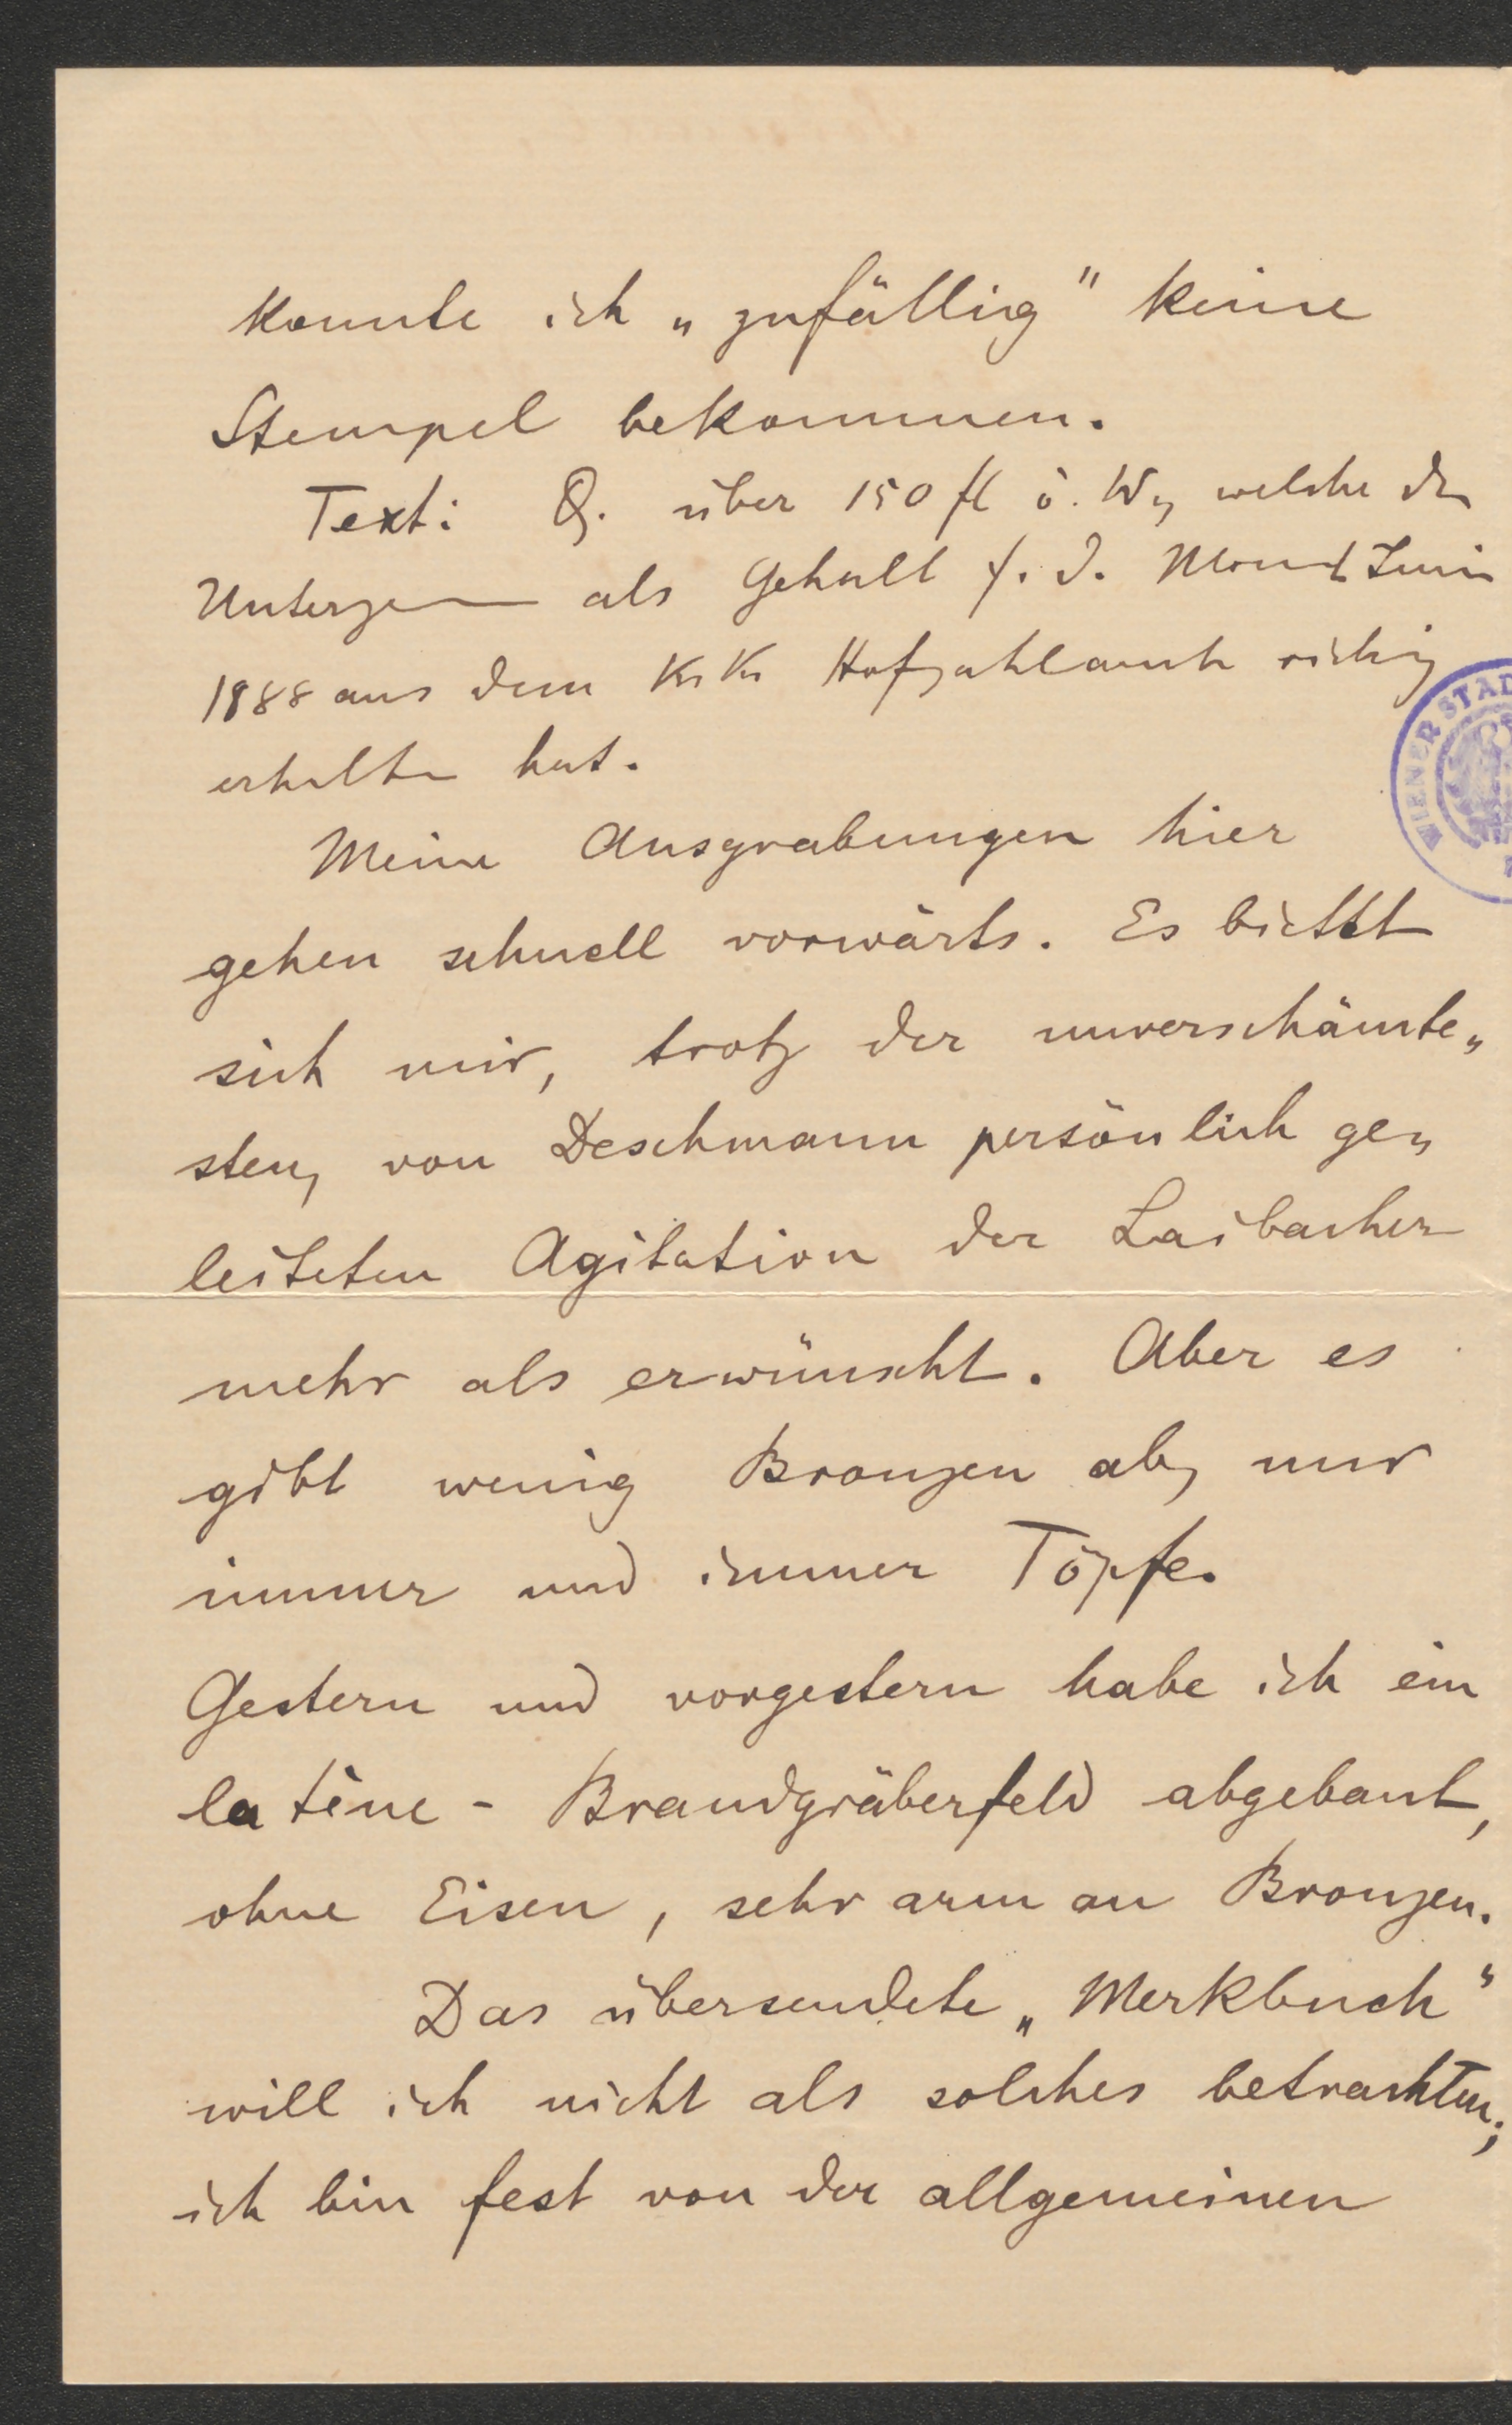 konnte ich „zufällig" keine
Stempel bekommen.
Text: Q. über 150 fl ö. W, welche der
Unterzen als Gehalt f. d. Monat Juni
1888 aus dem K. K. Hofzahlamte richtig
erhalten hat.
Meine Ausgrabungen hier
gehen schnell vorwärts. Es bietet
sich mir, trotz der unverschämte„
sten, von Deschmann persönlich ge„
leiteten Agitation der Laibacher
mehr als erwünscht. Aber es
gibt wenig Bronzen ab, nur
immer und immer Töpfe.
Gestern und vorgestern habe ich ein
la tène - Brandgräberfeld abgebaut,
ohne Eisen, sehr arm an Bronzen.
Das übersendete „Merkbuch"
will ich nicht als solches betrachten;
ich bin fest von der allgemeinen
WIENER STAD